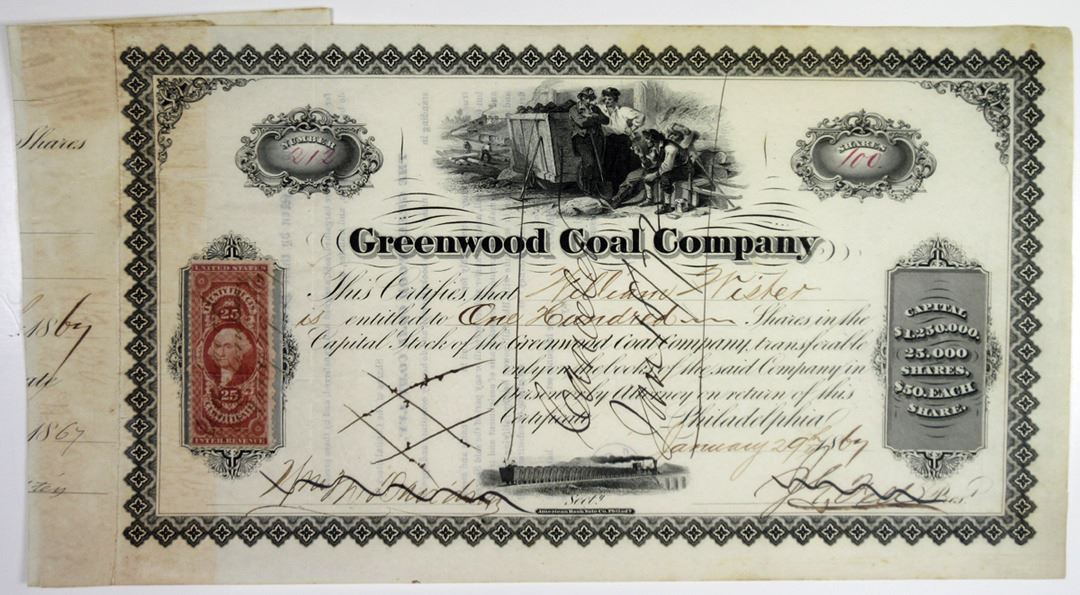 Shares
1867
1867
NUMBER
212
SHARES
100.
Greenwood Coal Company
This Certifies that William Wister
is entitled to One Hundred Shares in the
Capital Stock of the Greenwood Coal Company, transferable
only on the books of the said Company in
person or by Attorney on return of this
Certificate. Philadelphia
January 29th 1867
Cancelled
UNITED STATES
TWENTY FIVE CENTS
25
25
CERTIFICATE
INTER. REVENUE
CAPITAL
$1,250,000.
25.000
SHARES,
$50. EACH
SHARE.
Sect'y
Pres't
American Bank Note Co. Philad'a